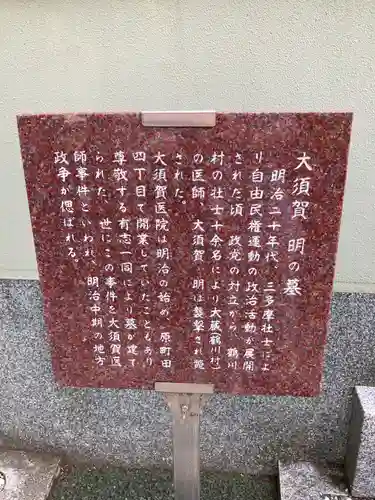 大須賀 明の墓
明治二十年代、三多摩壮士によ
り自由民権運動の政治活動が展開
された頃 政党の対立から、鶴川
村の壮士十余名により大蔵(鶴川村)
の医師 大須賀 明は襲撃され斃
された。
大須賀医院は明治の始め 原町田
四丁目で開業していたこともあり
尊敬する有志一同により墓が建て
られた。世にこの事件を大須賀医
師事件といわれ、明治中期の地方
政争が偲ばれる。